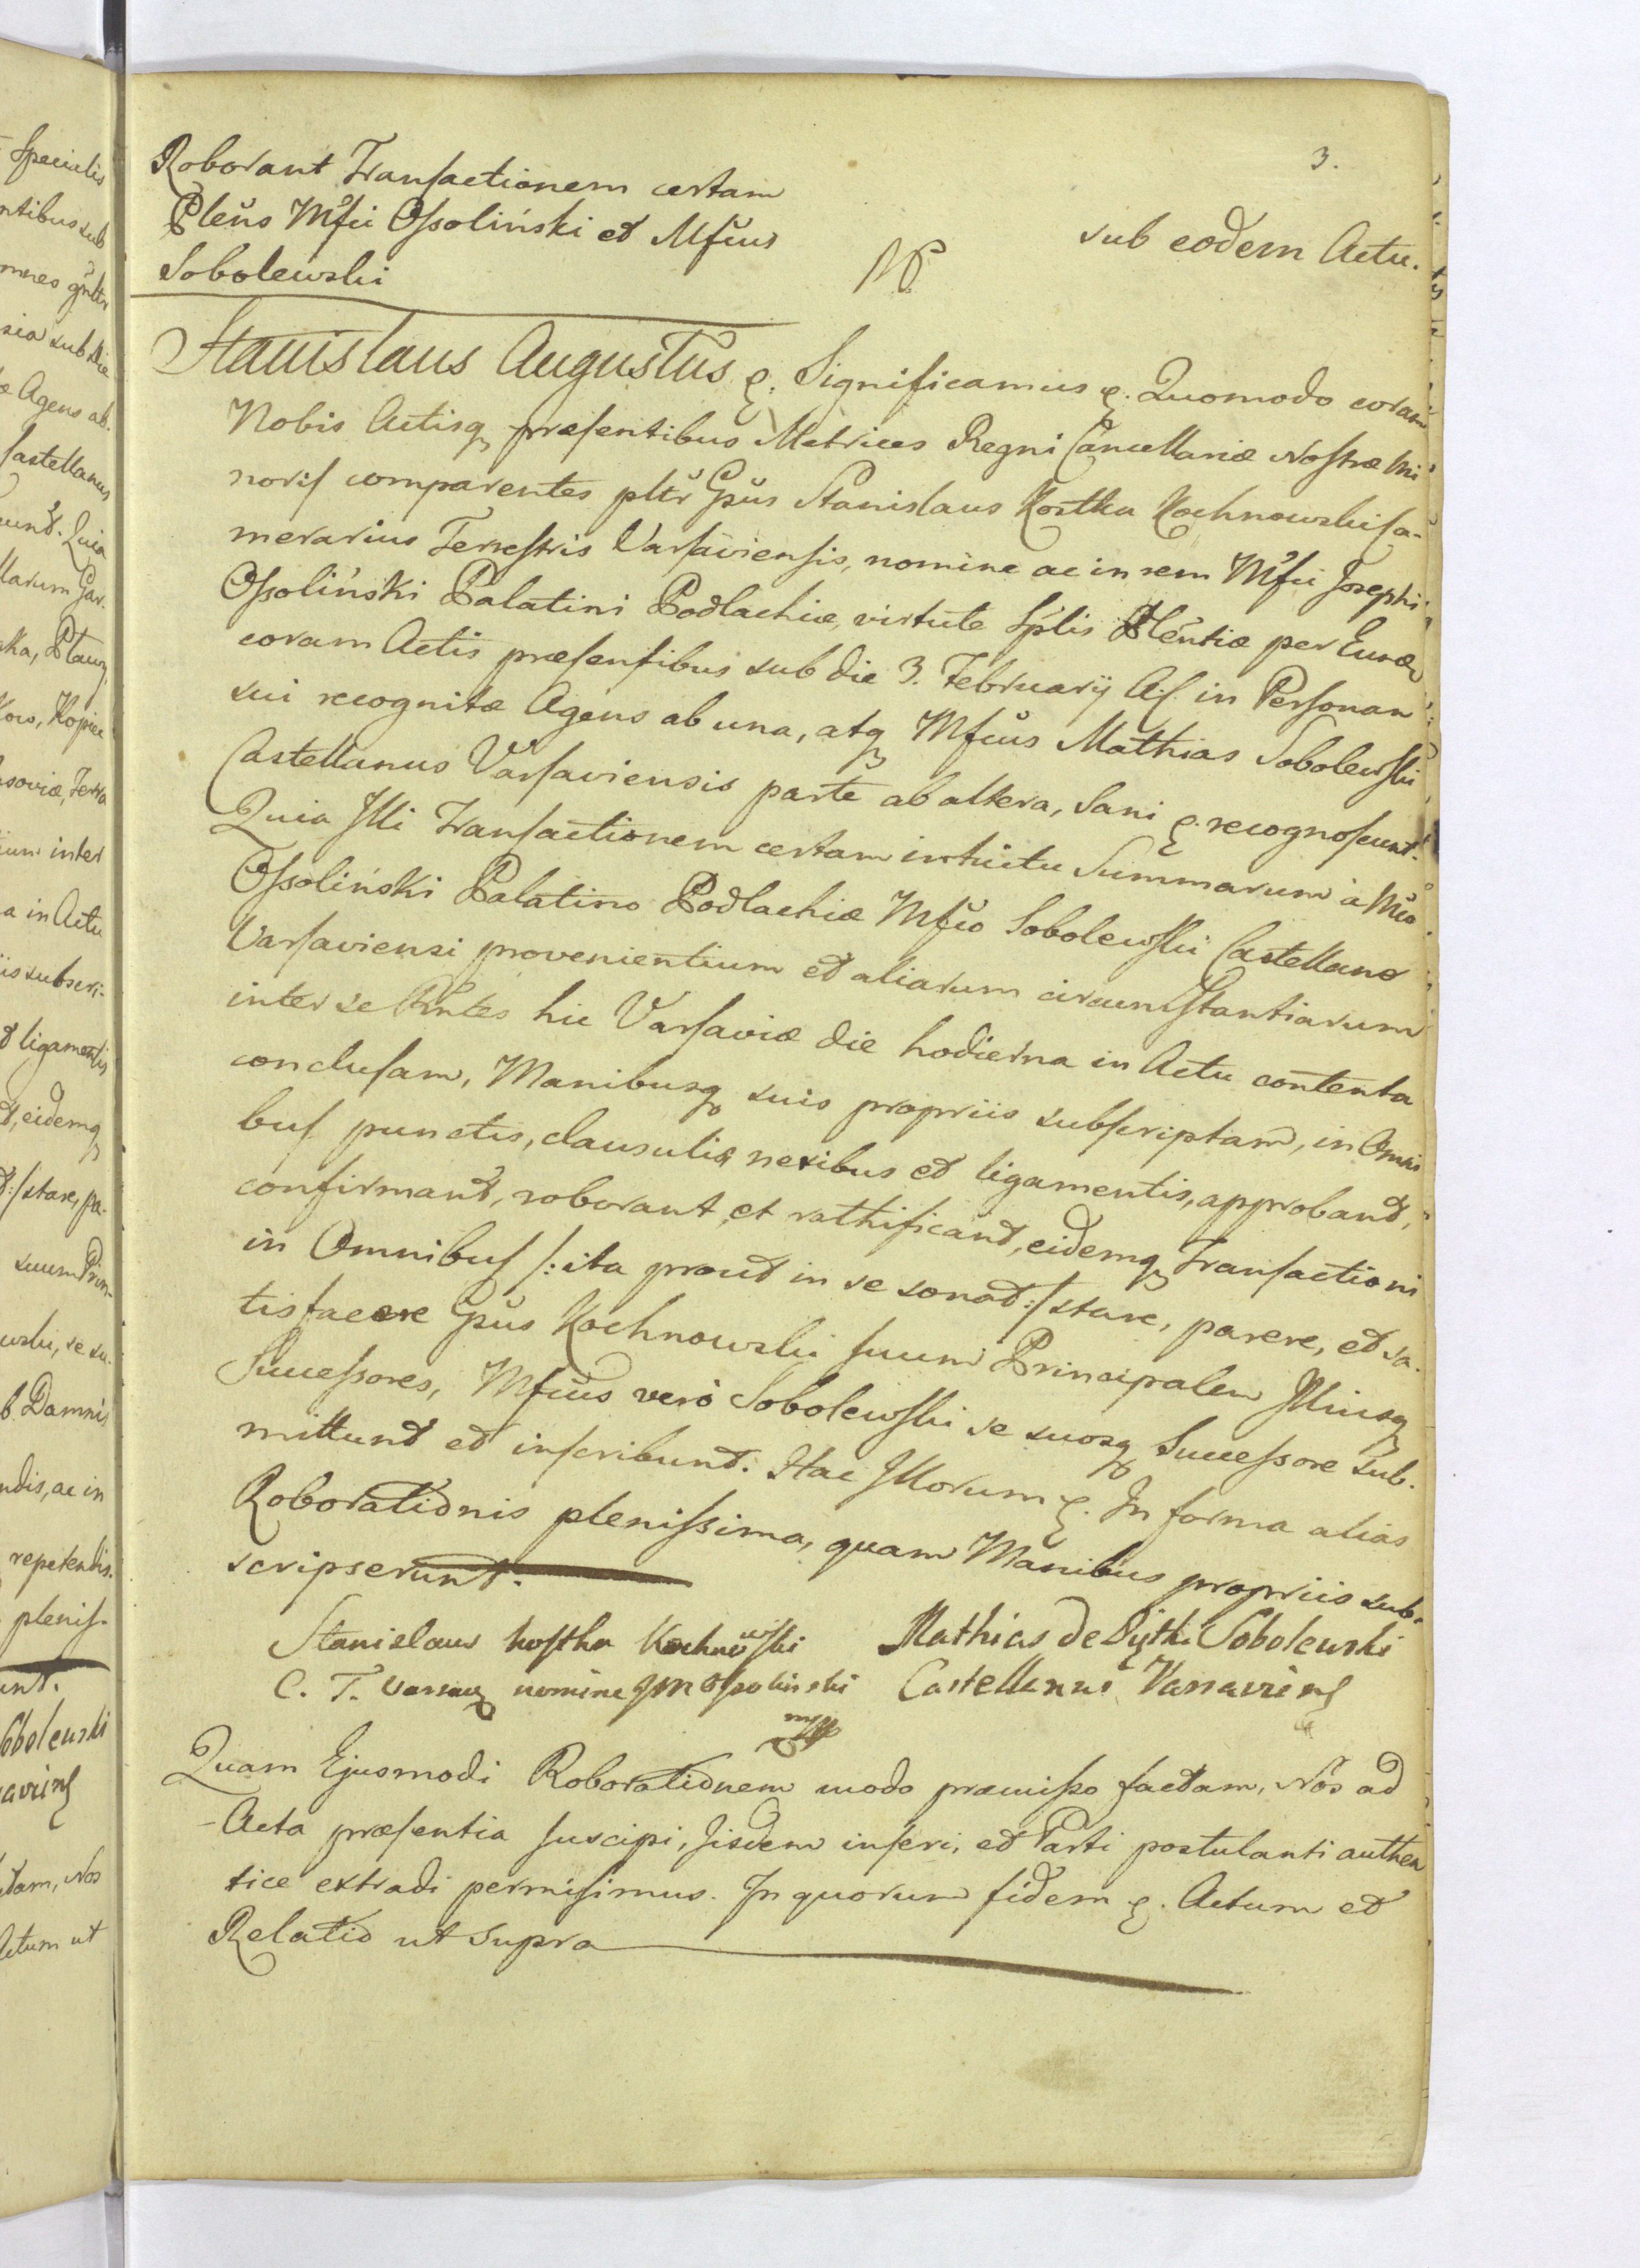 3.
Roborant Transactionem certam
Plen̄s Mfci Ossoliński et Mfcus
Sobolewski
sub eodem Actu.
Stanislaus Augustus &. Significamus &. Quomodo coram
Nobis Actisq præsentibus Metrices Regni Cancellariæ Nostræ Mi
noris comparentes pltr Gsus Stanislaus Kostka Kochnowski Ca-
merarius Terrestris Varsaviensis, nomine ac in rem Mfci Josephi
Ossoliński Palatini Podlachiæ, virtute Splis Plentiæ per Eund
coram Actis præsentibus sub die 3. February A. C. in Personam
sui recognitæ Agens ab una, atq Mfcus Mathias Sobolewski
Castellanus Varsaviensis parte ab altera, Sani &. recognoscunt.
Quia Illi Transactionem certam intuitu Summarum à Mfco
Ossoliński Palatino Podlachiæ Mfco Sobolewski Castellano
Varsaviensi provenientium et aliarum circumstantiarum
inter se Rntes hic Varsaviæ die hodierna in Actu contenta
conclusam, Manibusq suis propriis subscriptam, in Omni
bus punctis, clausulis nexibus et ligamentis, approband,
confirmant, roborant et rathificant, eidemq Transactioni
in Omnibus /: ita prout in se sonat :/ stare, parere, et sa-
tisfacere Gsus Kochnowski suum Principalem Illiusq
Successores, Mfcus verò Sobolewski se suosq Successore sub-
mittunt et inscribunt. Hac Illorum &. In forma alias
Roborationis plenissima, quam Manibus propriis sub-
scripserunt.
Stanislaus Kostka Kochnowski
C. T. Varsav nomine JM Ossolinski
mp
Mathias de Pięthi Sobolewski
Castellanus Varsaviens
Quam Ejusmodi Roborationem modo præmisso factam, Nos ad
Acta præsentia suscipi, Iisdem inseri, et Parti postulanti authen
tice extradi permisimus. In quorum fidem &. Actum et
Relatio ut supra
Specialis
ntibus sub
sia sub die
Agens ab
Castellanus
unt. Quia
Kopiec
inter
a in Actu
is subscri-
t ligamentis
t, eidemq
:/ stare, pa-
suum Prin-
wski, se su-
b Damnis
ndis, ac in
repetendis.
pleniss-
unt.
Sobolewski
aviens
ctam, Nos
Actum ut